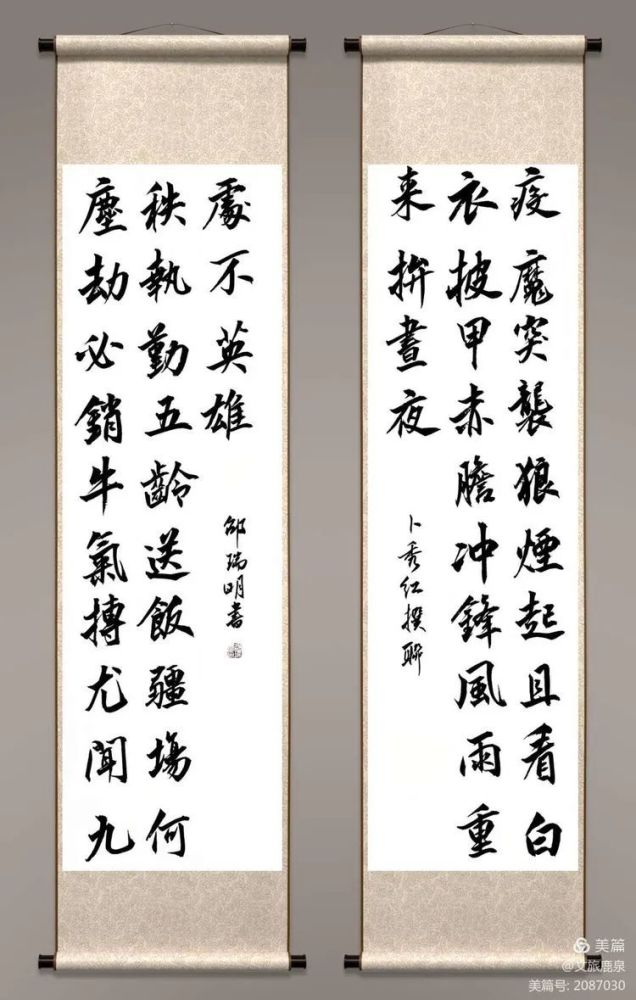 疫魔突襲狼煙起且看白
衣披甲赤膽冲鋒風雨重
来拚晝夜
卜秀红撰聯
塵劫必銷牛氣搏尤聞九
秩執勤五齡送飯疆場何
處不英雄
邵瑞明書
美篇
@文旅鹿泉
美篇号: 2087030